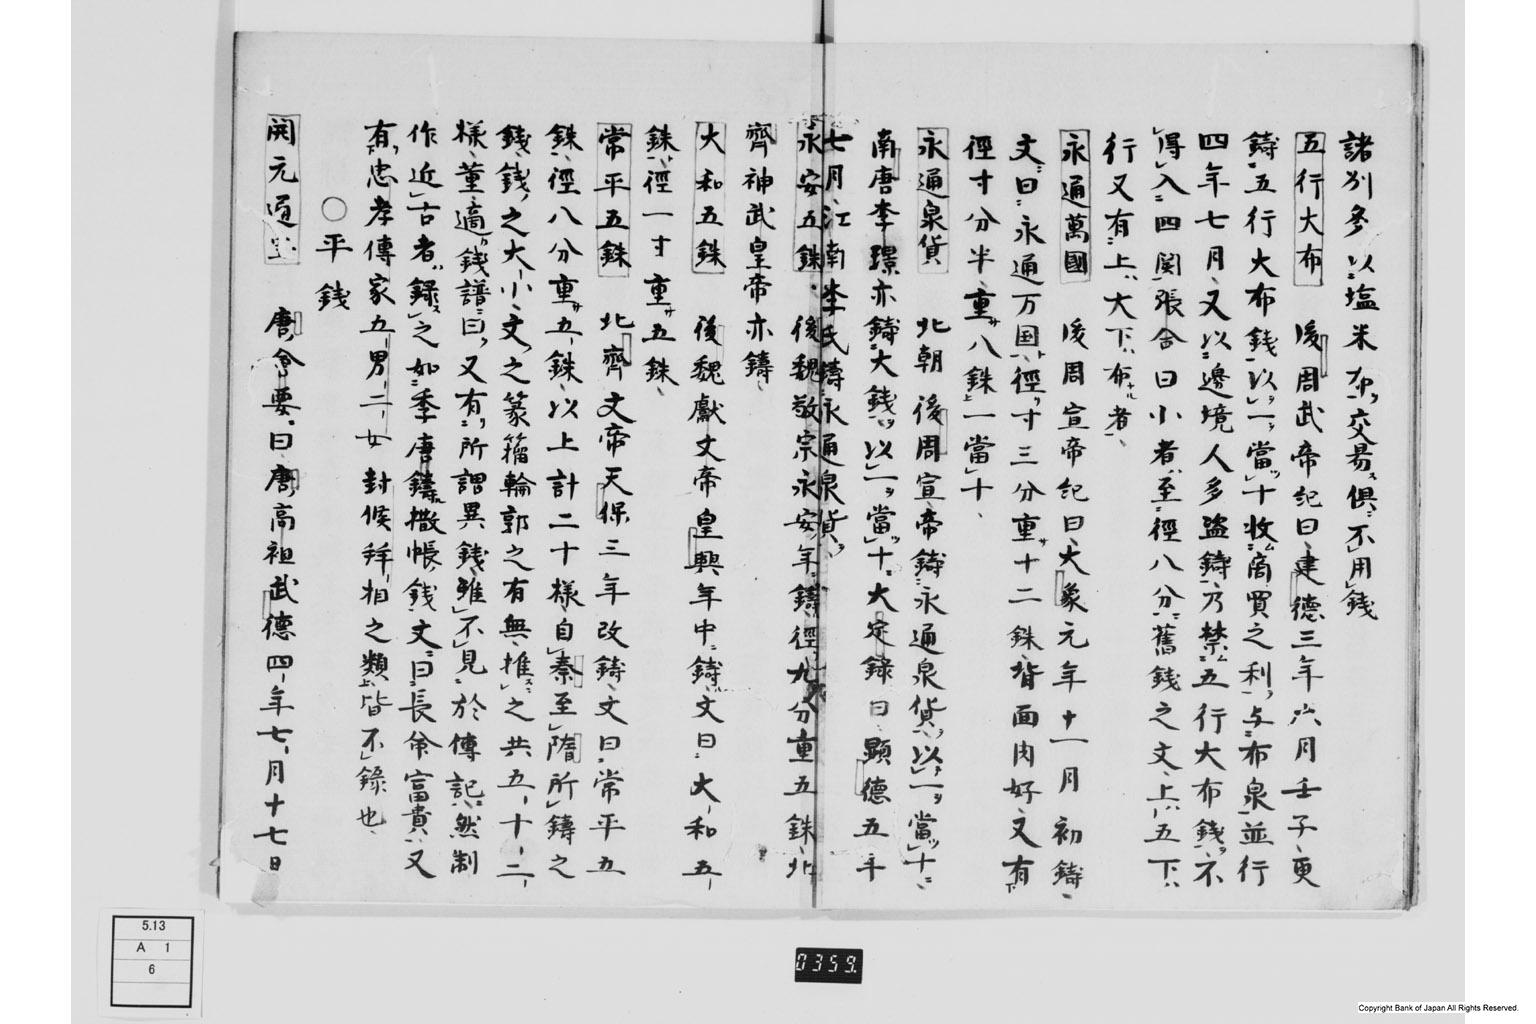 諸別参以塩米布交易俱不用銭
五行大布 後周武帝紀曰建德三年六月壬子更
鋳五行大布銭以一當十收商買之利与布泉並行
四年七月又以邊境人多盗鋳乃禁五行大布銭不
得入四関張舍曰小者至徑八分舊銭之文上五下
行又有上大下布者
永通萬國 後周宣帝紀曰大象元年十一月初鋳
文曰永通万国徑寸三分重十二銖背面肉好又有
徑寸分半重八銖一當十
永通泉貨 北朝後周宣帝鋳永通泉貨以一當十
南唐李璟亦鋳大銭以一當十大定録曰顕德五年
七月江南李氏鋳永通泉貨
永安五銖 後魏敬宗永安年鋳徑九分重五銖北
齊神武皇帝亦鋳
大和五銖 後魏獻文帝皇興年中鋳文曰大和五
銖徑一寸重五銖
常平五銖 北齊文帝天保三年改鋳文曰常平五
銖徑八分重五銖以上計二十樣自秦至隋所鋳之
銭銭之大小文之篆籀輪郭之有無推之共五十二
樣董逌銭譜曰又有所謂異銭雖不見於傳記然制
作近古者録之如季唐鋳撒帳銭文曰長命富貴又
有忠孝傳家五男二女封候拜相之類皆不録也
○平銭
開元通宝 唐會要曰唐高祖武德四年七月十七日
5.13
A 1
6
0359.
Copyright Bank of Japan All Rights Reserved.